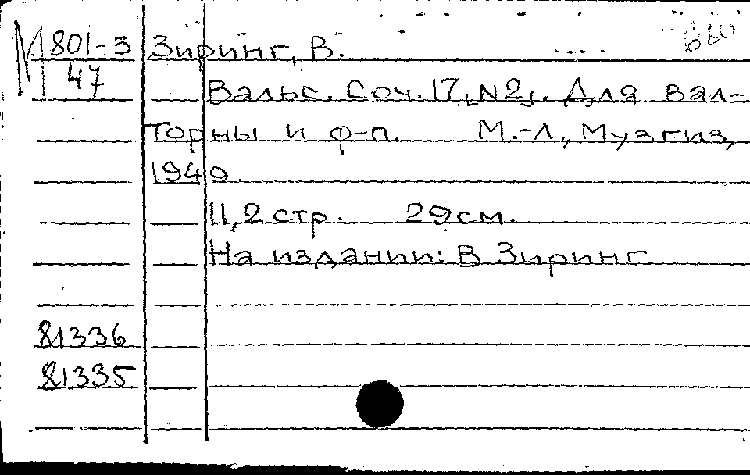 М 801-3 Зиринг, В.
47 Вальс. Соч. 17, №2. Для вал-
торны и ф-п. М.-Л., Музгиз,
1940.
11,2 стр. 29см.
На издании: В Зиринг
81336
81335